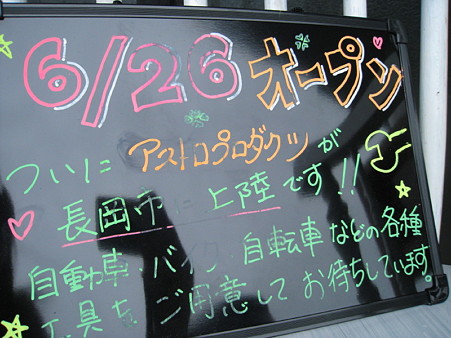 6/26オープン
ついにアストロプロダクツが
長岡市に上陸です!!
自動車、バイク、自転車などの各種
工具をご用意してお待ちしています。